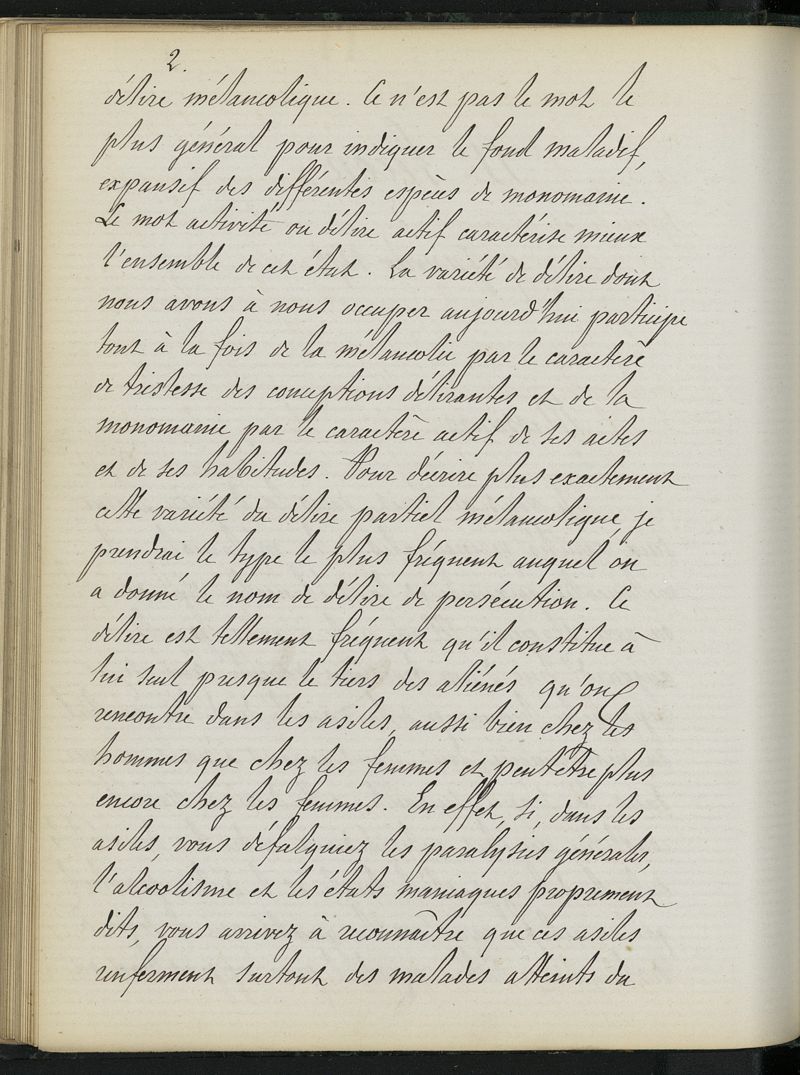 2.
délire mélancolique. Ce n'est pas le mot le
plus général pour indiquer le fond maladif,
expansif des différentes espèces de monomanie.
Le mot activité ou délire actif caractérise mieux
l'ensemble de cet état. La variété de délire dont
nous avons à nous occuper aujourd'hui participe
tout à la fois de la mélancolie par le caractère
de tristesse des conceptions délirantes et de la
monomanie par le caractère actif de ses actes
et de ses habitudes. Pour décrire plus exactement
cette variété du délire partiel mélancolique, je
prendrai le type le plus fréquent auquel on
a donné le nom de délire de persécution. Ce
délire est tellement fréquent qu'il constitue à
lui seul presque le tiers des aliénés qu'on
rencontre dans les asiles, aussi bien chez les
hommes que chez les femmes et peut être plus
encore chez les femmes. En effet, si, dans les
asiles, vous défalquiez les paralysies générales,
l'alcoolisme et les états maniaques proprement
dits, vous arrivez à reconnaître que ces asiles
renferment surtout des malades atteints du